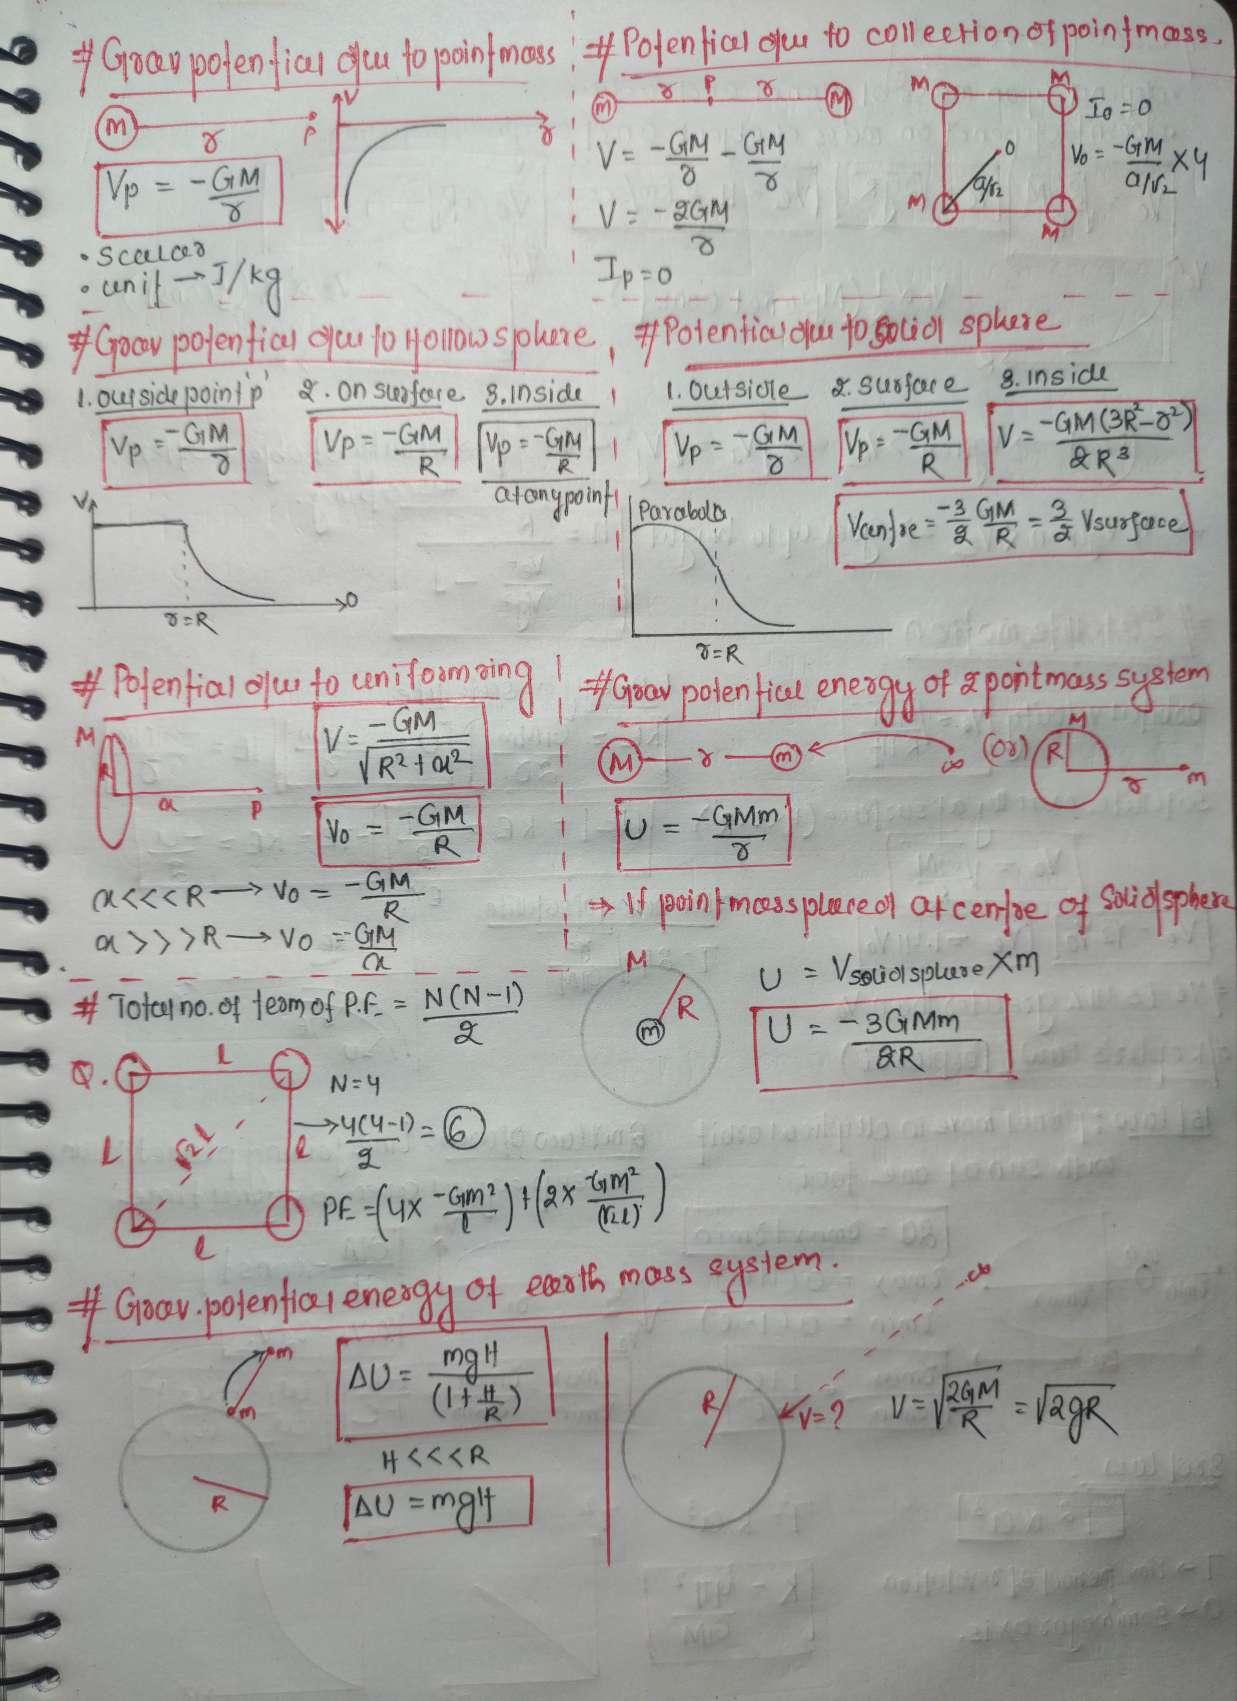 # Grav potential due to point mass
m r P
V r
Vp = -GM/r
• scalar
• unit → J/kg
# Potential due to collection of point mass.
m r P r M
V = -GM/r - GM/r
V = -2GM/r
Ip = 0
M M
M M
O a/√2
I0 = 0
V0 = -GM/a/√2 × 4
# Grav potential due to Hollow sphere
1. outside point 'p' 2. On surface 3. Inside
Vp = -GM/r Vp = -GM/R Vp = -GM/R
at any point
V r=R
# Potential due to solid sphere
1. Outside 2. Surface 3. Inside
Vp = -GM/r Vp = -GM/R V = -GM(3R²-r²)/2R³
Vcentre = -3/2 GM/R = 3/2 Vsurface
Parabola
r=R
# Potential due to uniform ring
M R x P
V = -GM/√R²+x²
V0 = -GM/R
x<<<R → V0 = -GM/R
x>>>R → V0 = -GM/x
# Grav potential energy of 2 point mass system
M r m ∞ (or) M R r m
U = -GMm/r
⇒ If point mass placed at centre of solid sphere
M R m
U = Vsolid sphere × m
U = -3GMm/2R
# Total no. of term of P.E = N(N-1)/2
Q. l l l l √2l
N=4
→ 4(4-1)/2 = 6
PE = (4× -Gm²/l) + (2× GM²/(√2l))
# Grav. potential energy of earth mass system.
m m R
ΔU = mgH/(1+H/R)
H<<<R
ΔU = mgH
∞
R V=?
V = √2GM/R = √2gR